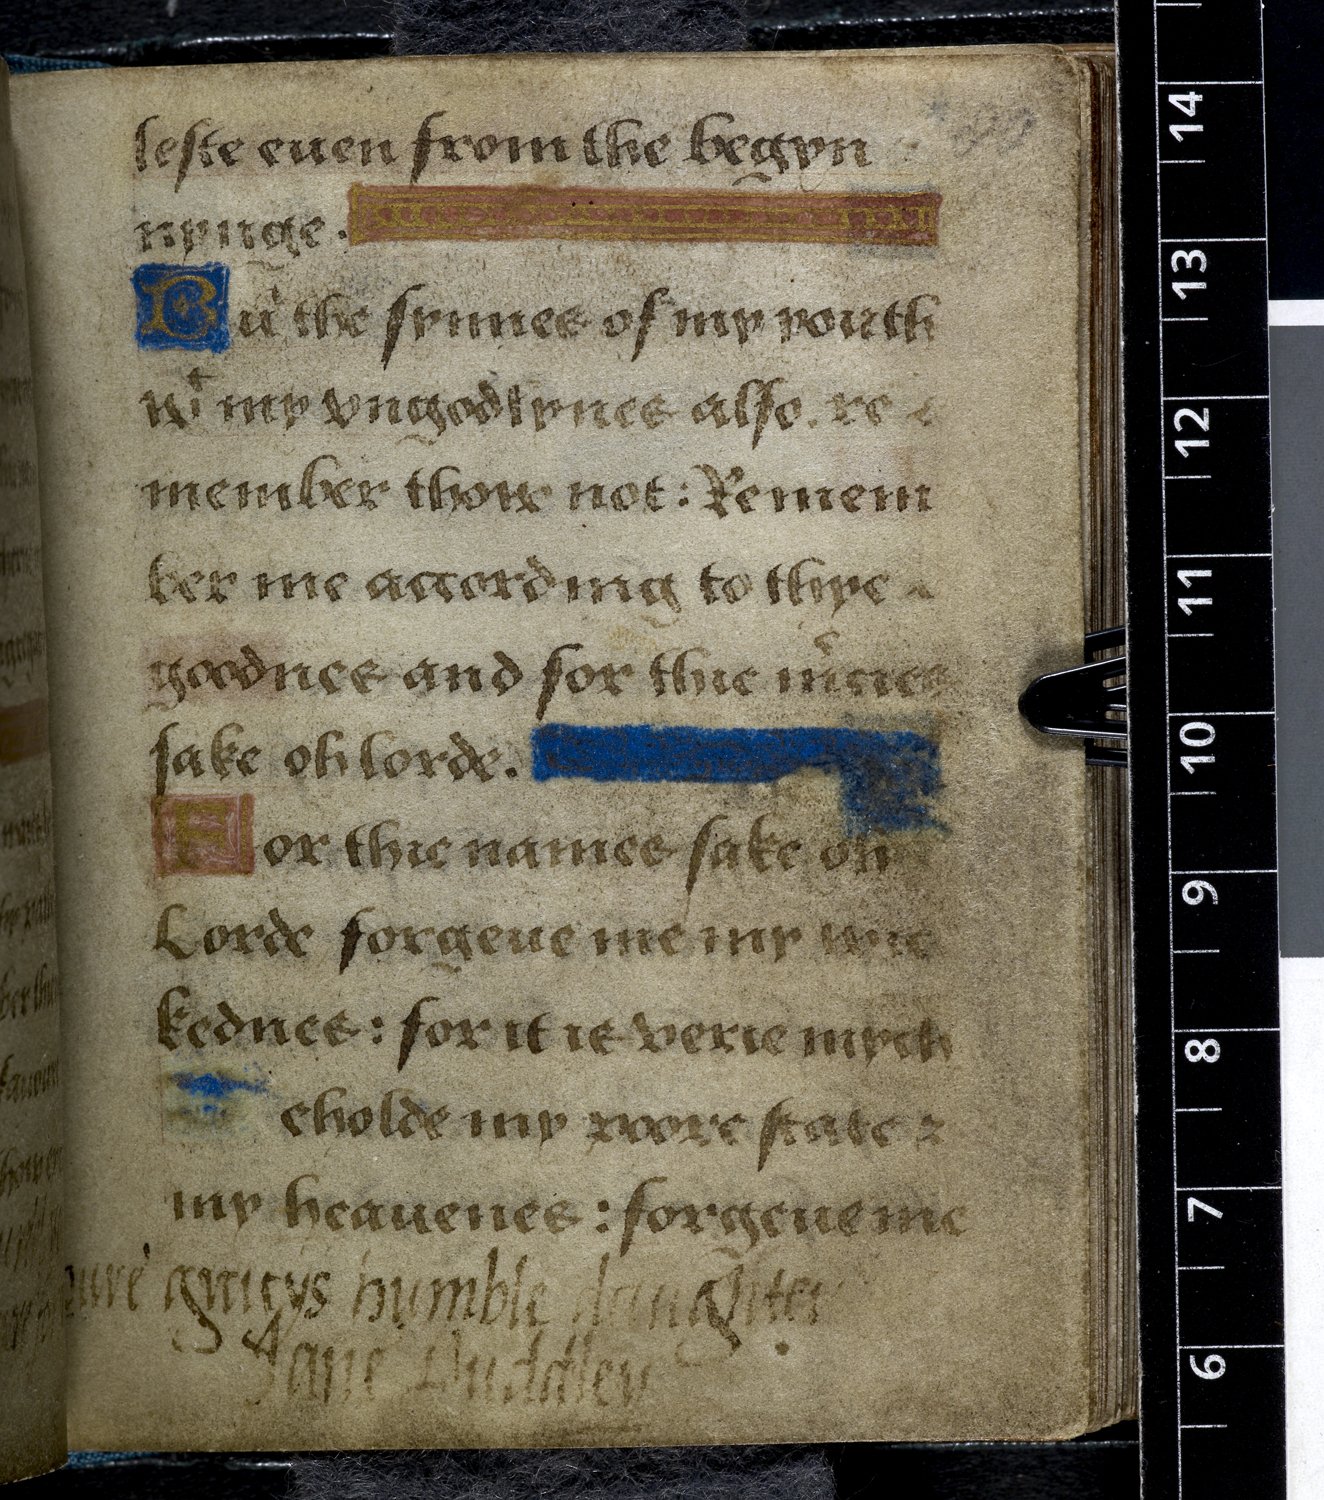 leste euen from the begyn
nynge.
But the synnes of my youth
wt my vngodlynes also. re
member thow not: Remem
ber me according to thye
goodnes and for thie mercies
sake oh lorde.
For thie names sake oh
Lorde forgeue me my wic
kednes: for it is verie mych
eholde my poore state &
my heauenes: forgeue me
youre gracys humble daughter
Jane Duddley
14
13
12
11
10
9
8
7
6